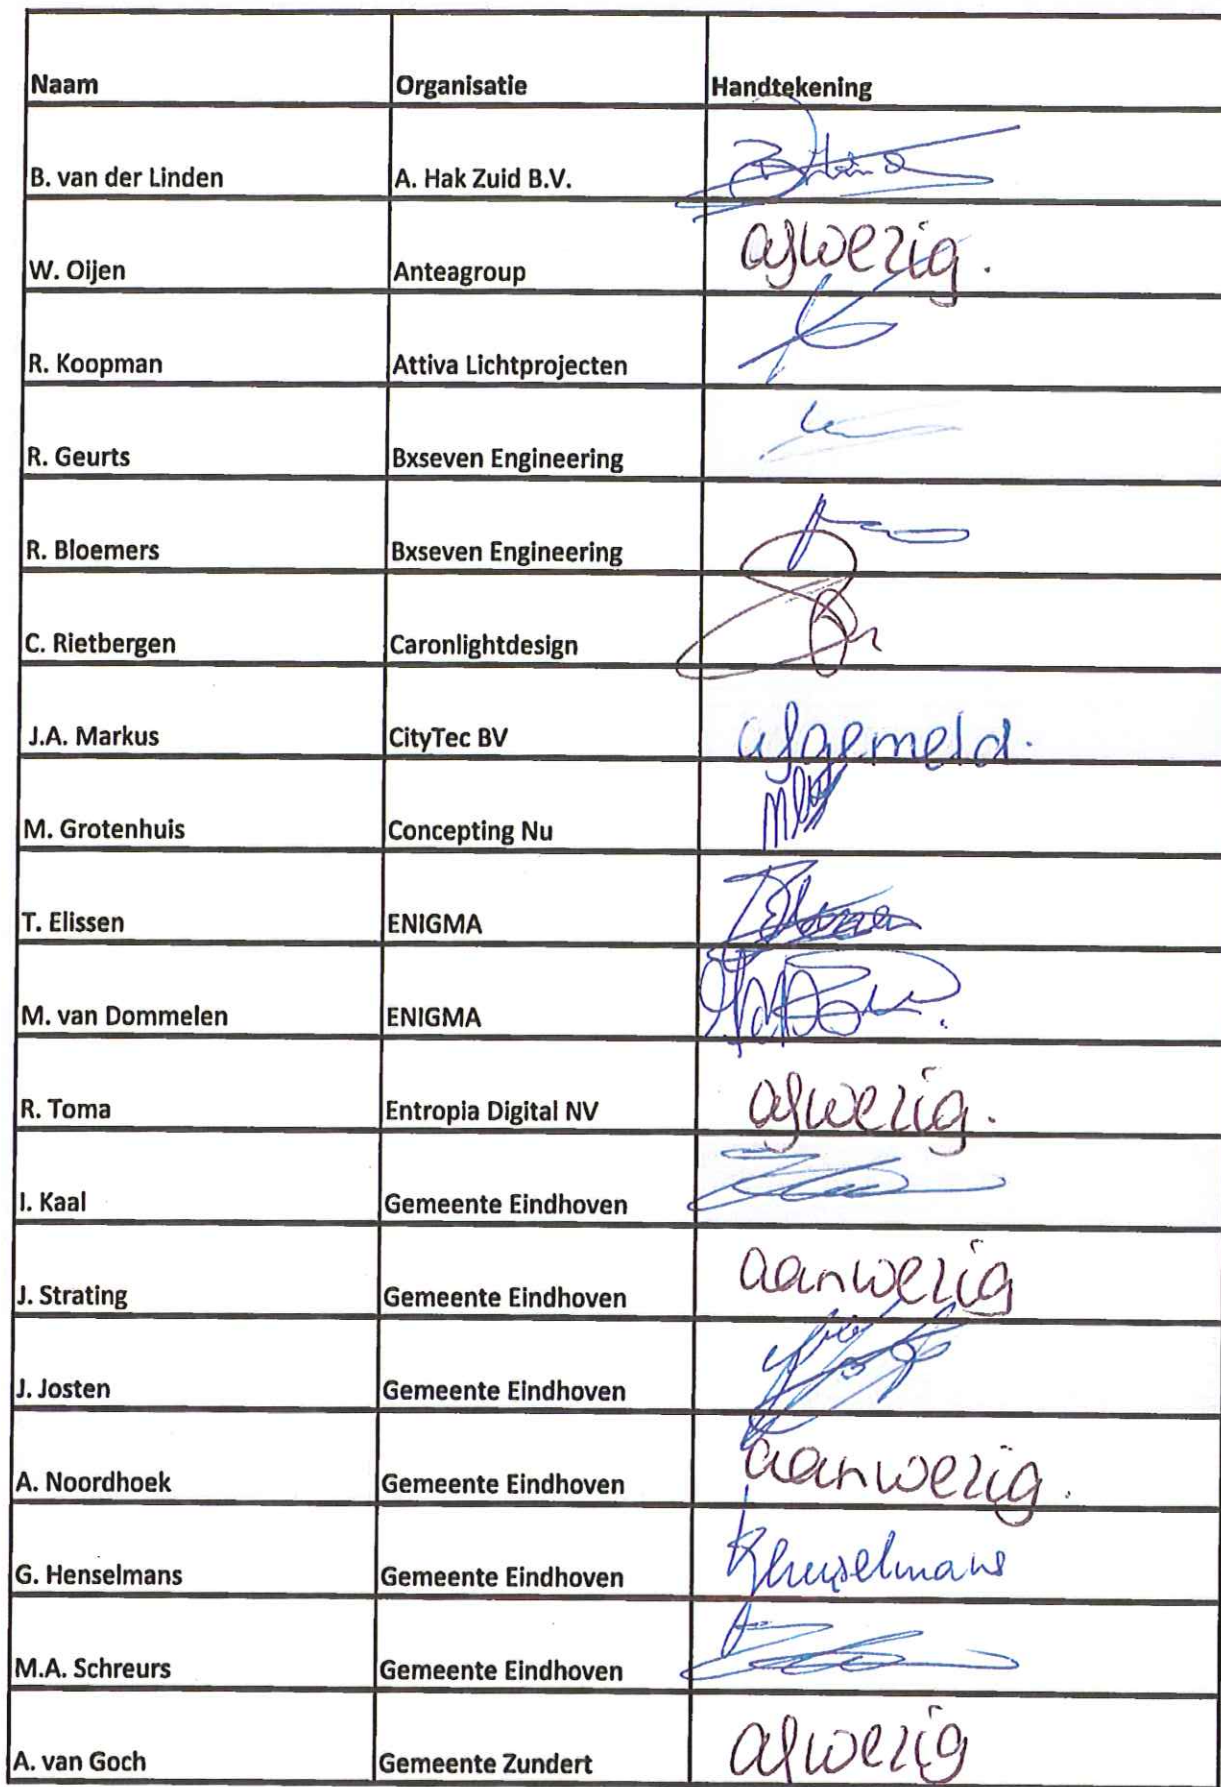 Naam Organisatie Handtekening
B. van der Linden A. Hak Zuid B.V.
W. Oijen Anteagroup afwezig.
R. Koopman Attiva Lichtprojecten
R. Geurts Bxseven Engineering
R. Bloemers Bxseven Engineering
C. Rietbergen Caronlightdesign
J.A. Markus CityTec BV afgemeld.
M. Grotenhuis Concepting Nu
T. Elissen ENIGMA
M. van Dommelen ENIGMA
R. Toma Entropia Digital NV afwezig.
I. Kaal Gemeente Eindhoven
J. Strating Gemeente Eindhoven aanwezig
J. Josten Gemeente Eindhoven
A. Noordhoek Gemeente Eindhoven aanwezig.
G. Henselmans Gemeente Eindhoven
M.A. Schreurs Gemeente Eindhoven
A. van Goch Gemeente Zundert afwezig